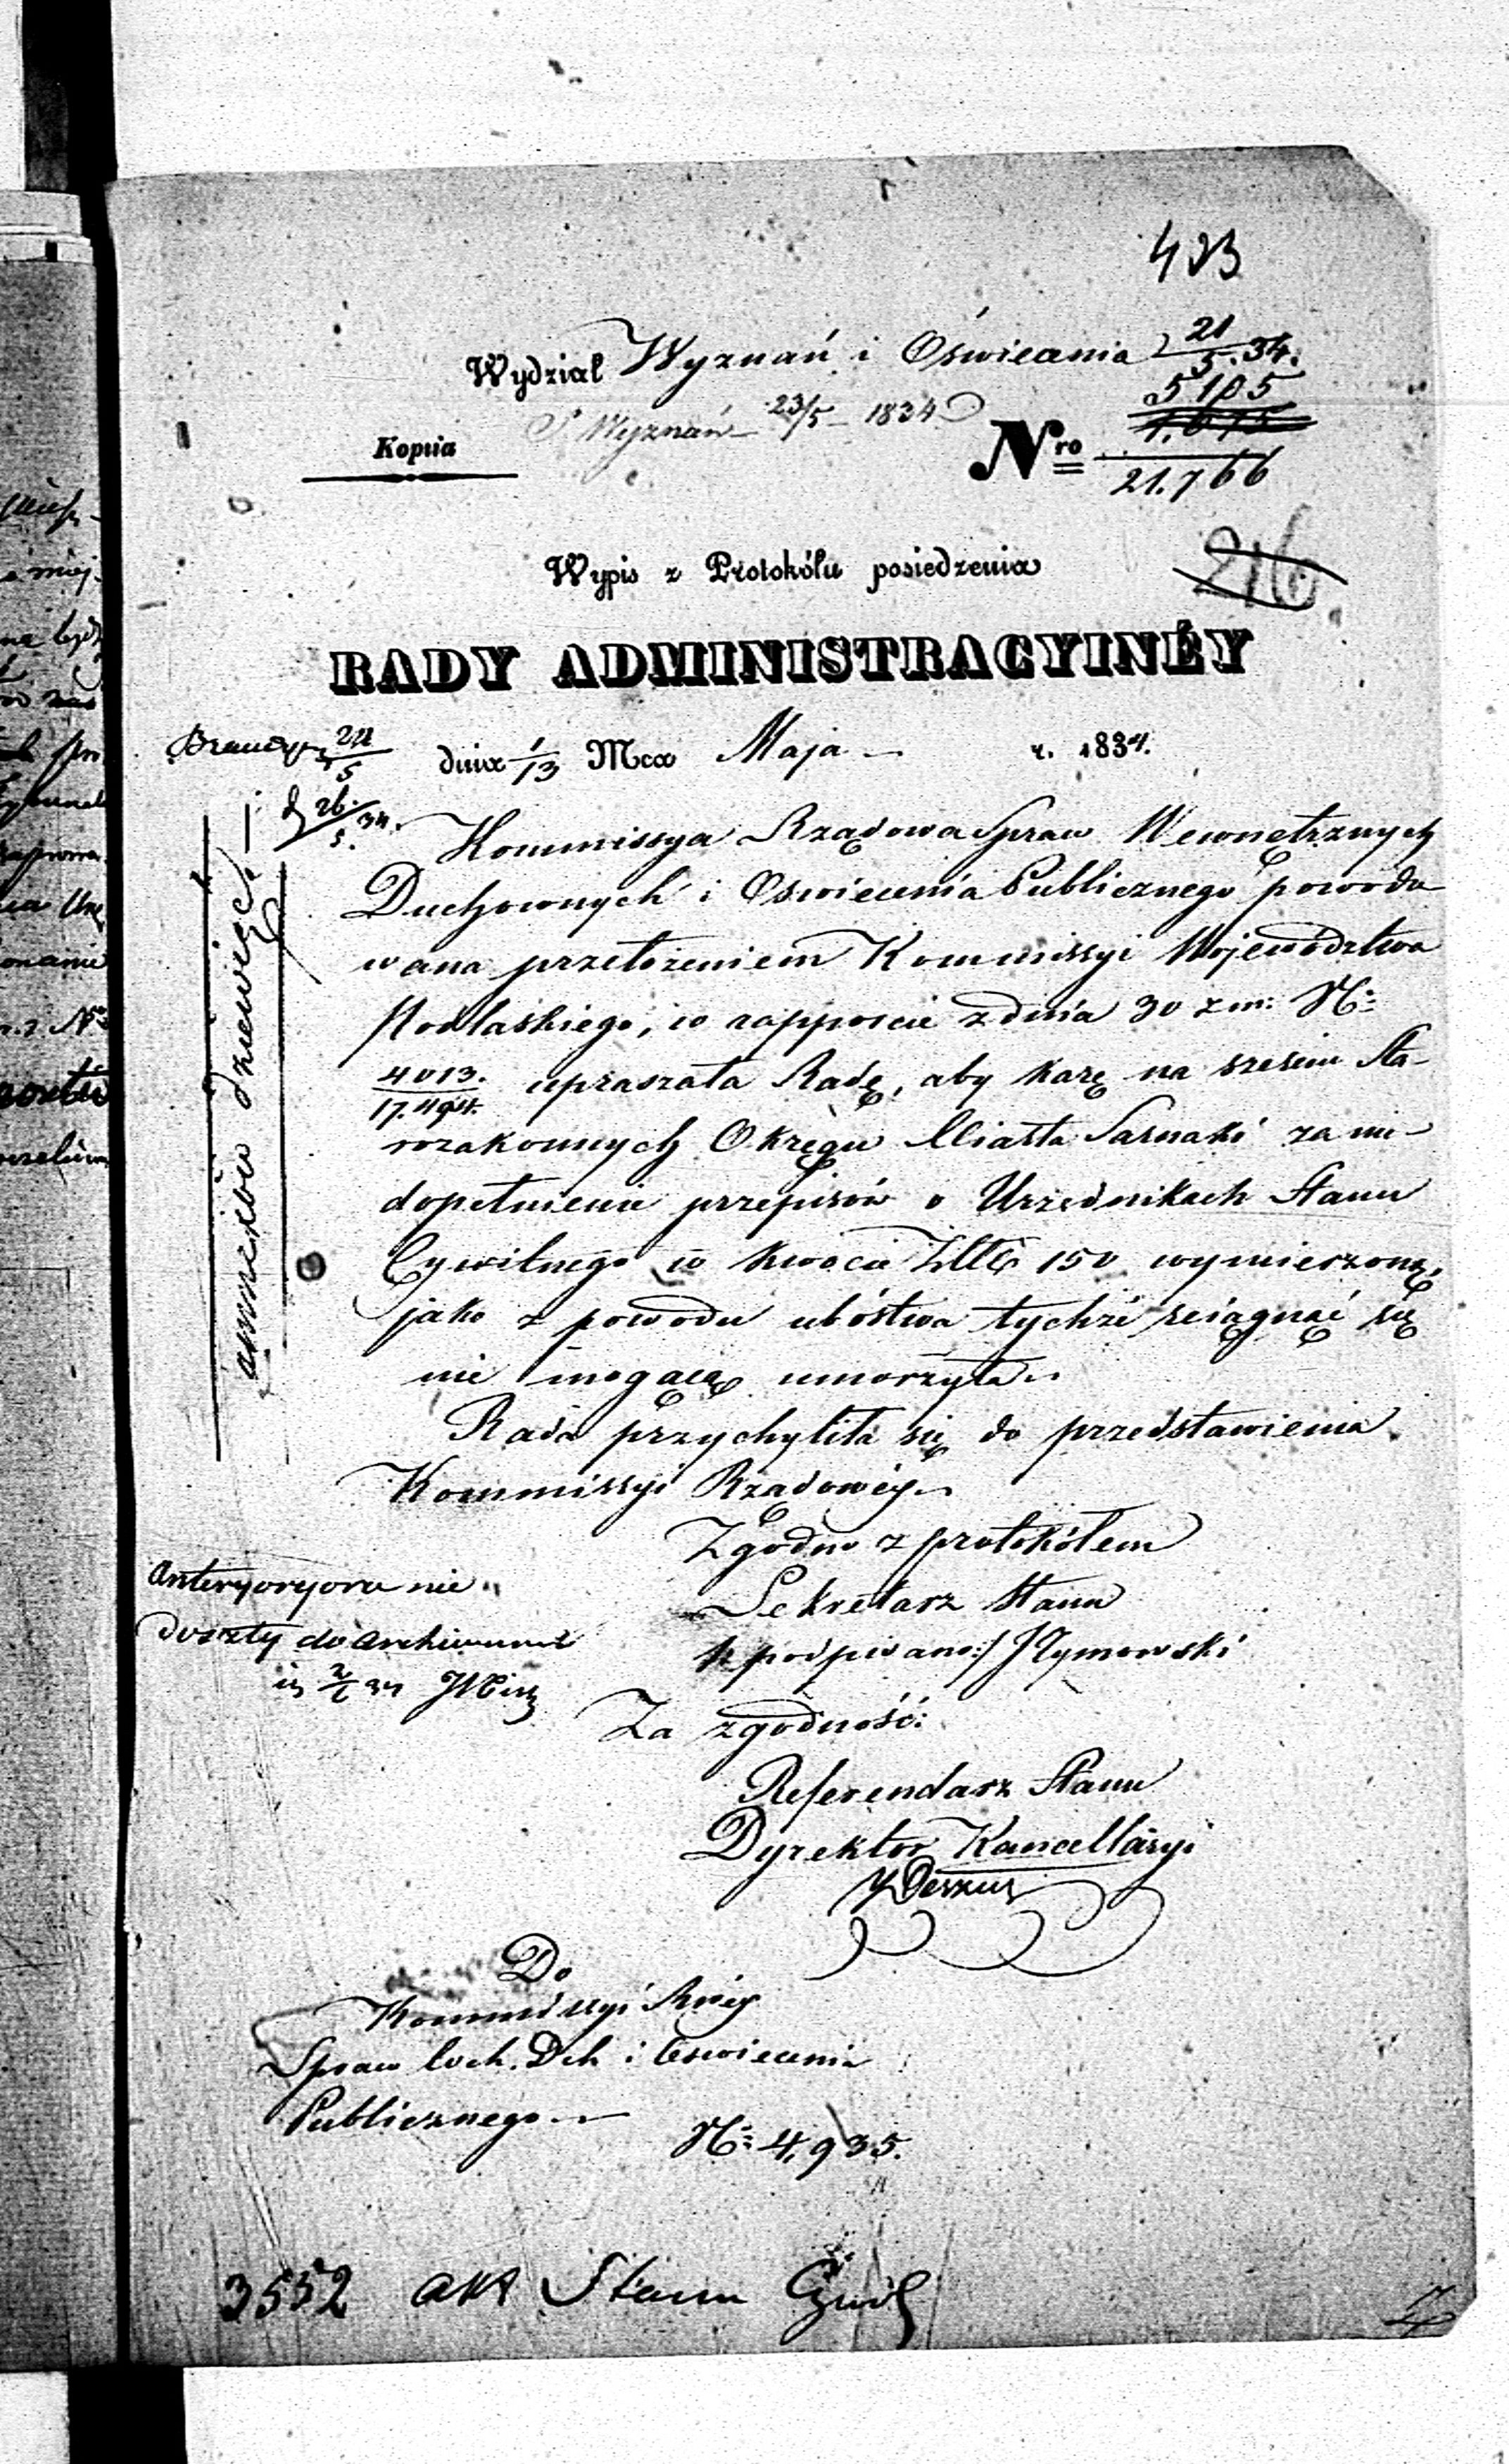 433
Wydział Wyznań i Oświecenia 21/5.34.
S. Wyznań 23/5 1834
5105
Kopiia
Nro 21.766
Wypis z Protokółu posiedzenia
216.
RADY ADMINISTRACYINÉY
24/5
dnia 1/13 Mca Maja r. 1834.
26/5.34.
Kommissya Rządowa Spraw Wewnętrznych
Duchownych i Oświecenia Publicznego powodo
wana przełożeniem Kommissyi Województwa
Podlaskiego, w rapporcie z dnia 30 z.m: No
4013./17.494. upraszała Radę, aby karę na sześciu Sta-
rozakonnych Okręgu Miasta Sarnaki za nie
dopełnienie przepisów o Urzędnikach Stanu
Cywilnego w kwocie Złł 150 wymierzoną,
jako z powodu ubóstwa tychże ściągnąć się
nie mogącą umorzyła.
Rada przychyliła się do przedstawienia
Kommissyi Rządowéy.
Zgodno z protokółem
Sekretarz Stanu
podpisano:/ J Tymowski
Za zgodność:
Referendarz Stanu
Dyrektor Kancellaryi
dziewięć
Anteryorora nie
doszły do Archiwum
Do
Kommissyi Rwéy
Spraw Wch. Dch i Oswiecenia
Publicznego
No 4,935.
3552 akt Stanu Cywil